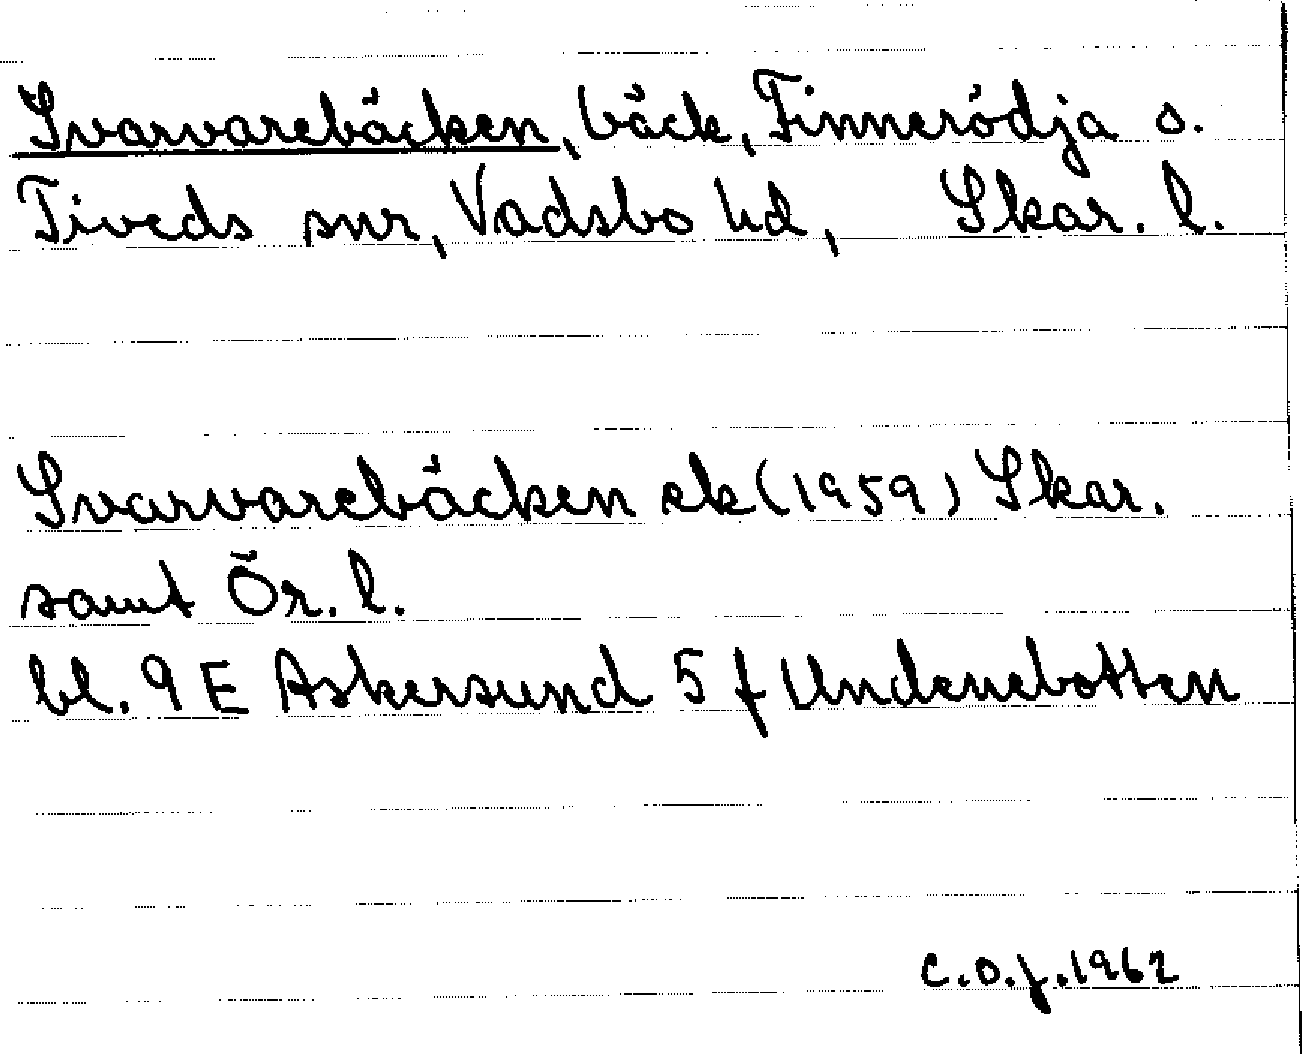 Svarvarebäcken, bäck, Finnerödja s.
Tiveds snr, Vadsbo hd, Skar. l.
Svarvarebäcken ek (1959) Skar.
samt Ör. l.
bl. 9 E Askersund 5 f Undenebotten
C.O.J. 1962